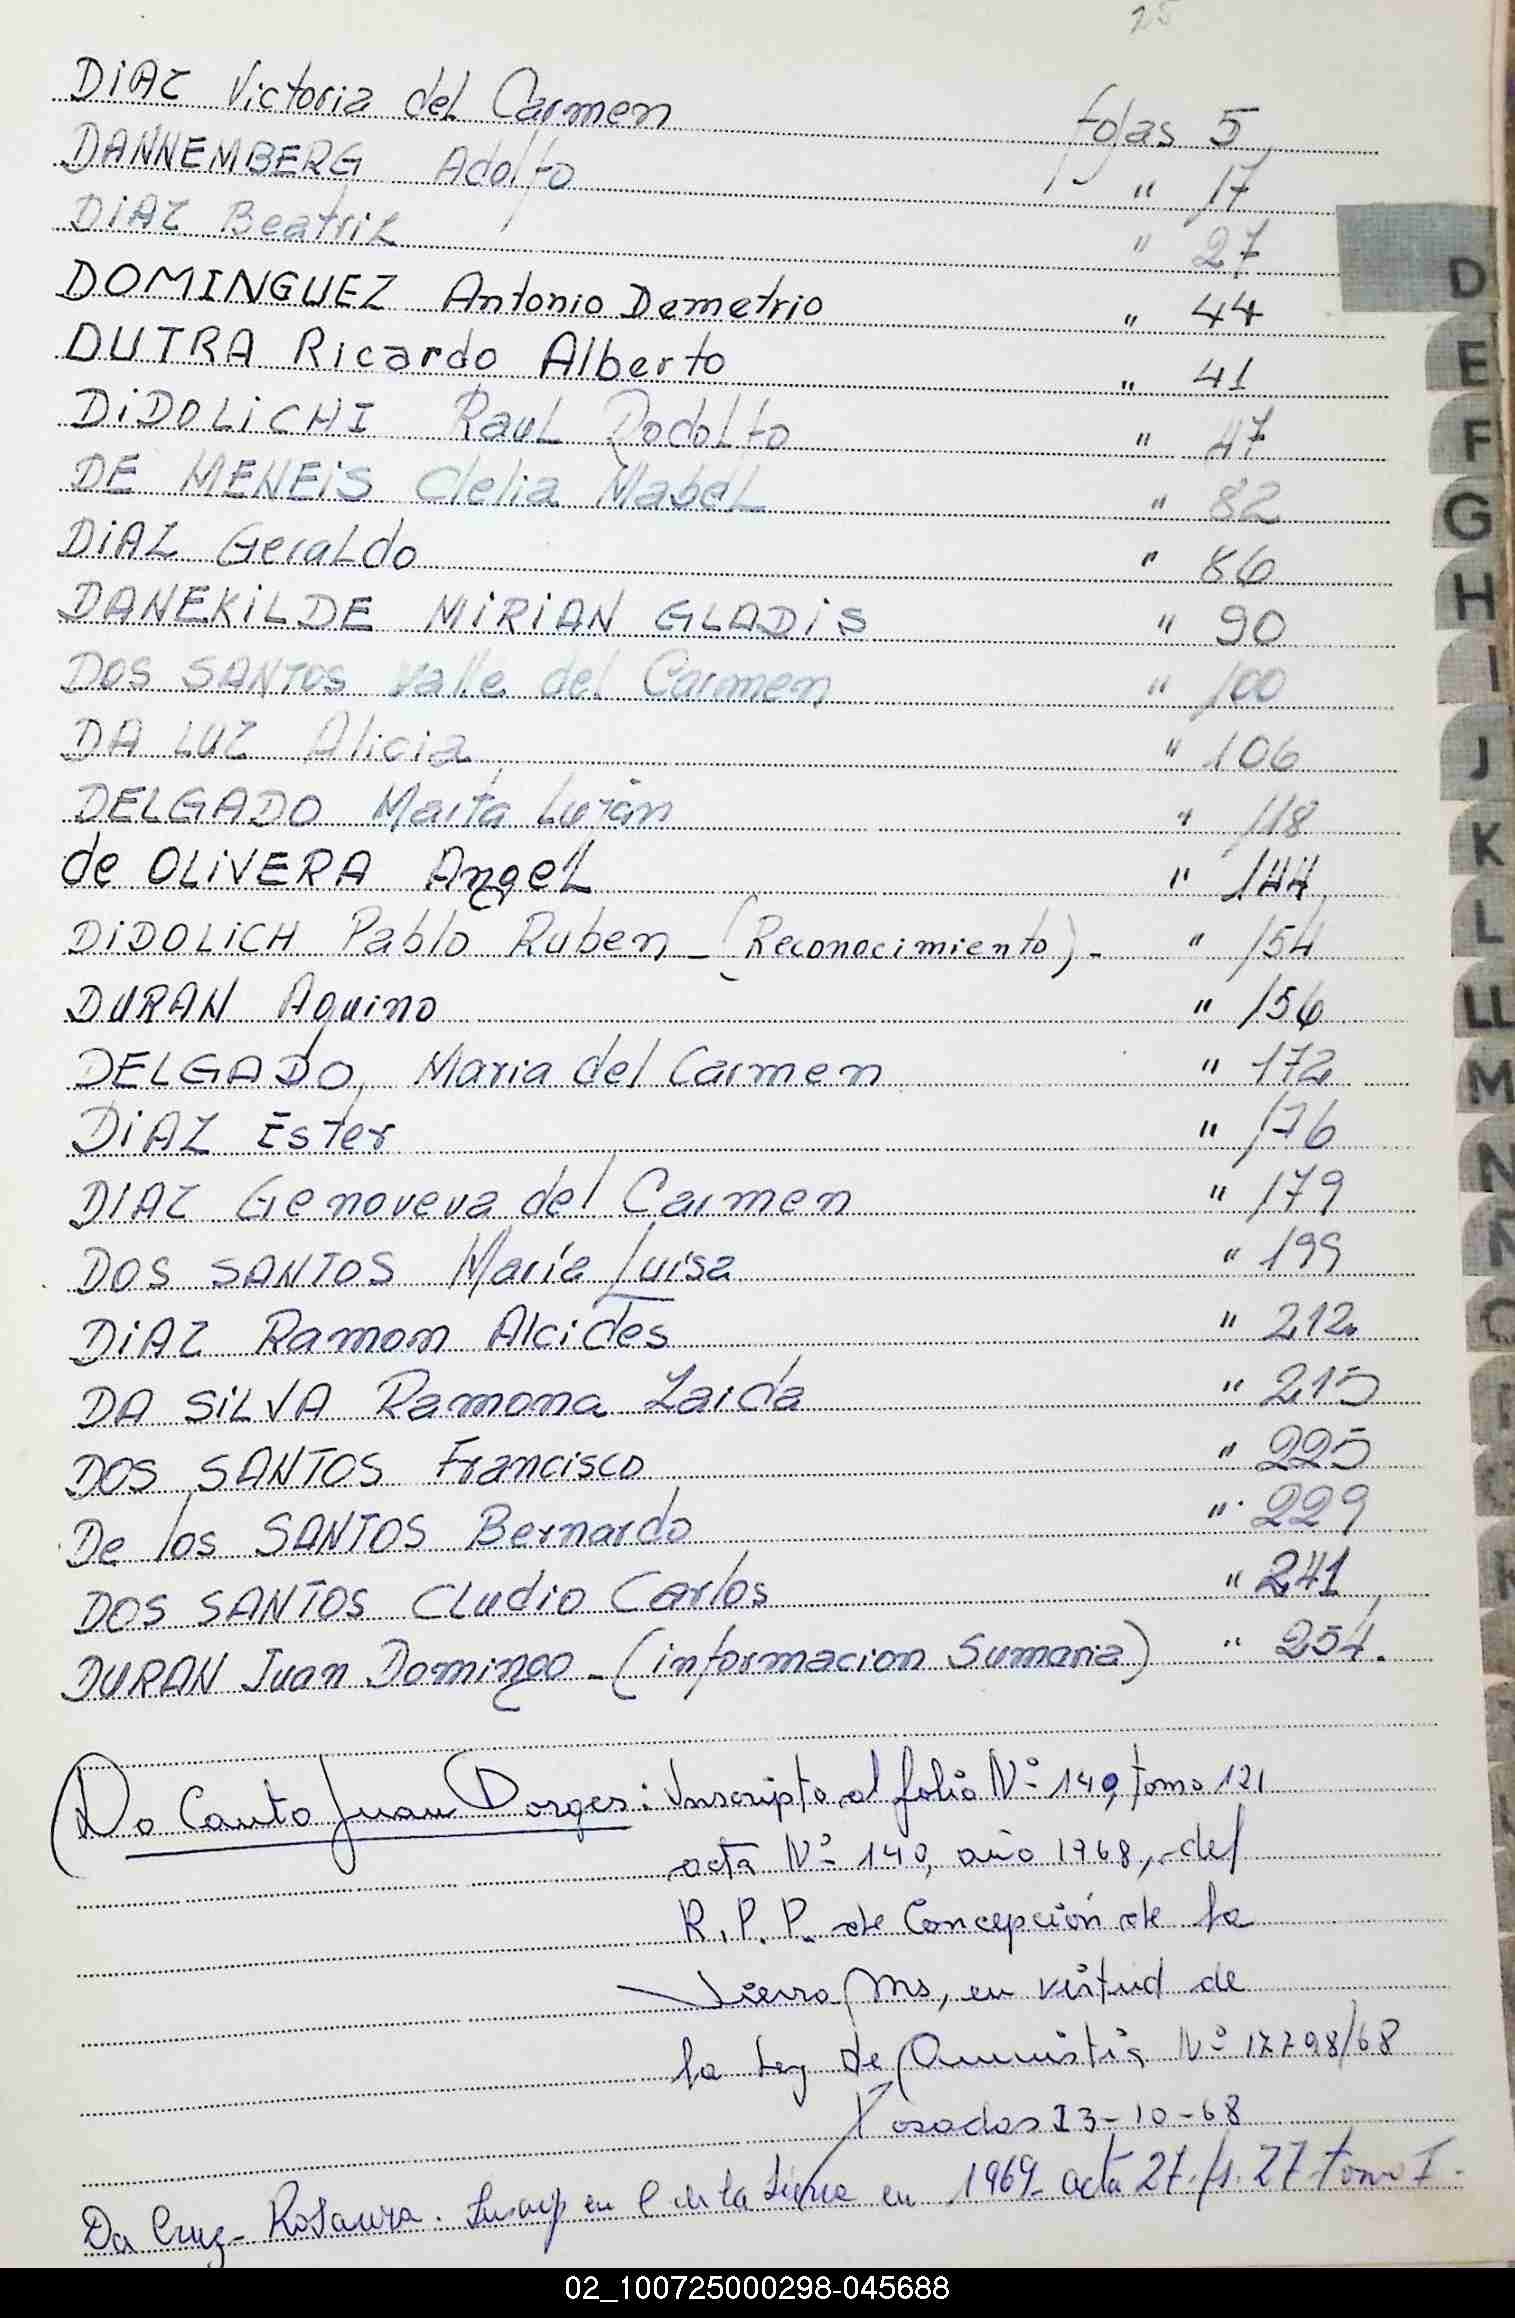 25
DiAZ Victoria del Carmen fojas 5
DANNEMBERG Adolfo " 17
DiAZ Beatriz " 27
DOMINGUEZ Antonio Demetrio " 44
DUTRA Ricardo Alberto " 41
DiDOLiCHI Raul Rodolfo " 47
DE MENEiS Clelia Mabel " 82
DiAZ Geraldo " 86
DANEKiLDE MiRiAN GLADiS " 90
DOS SANTOS Valle del Carmen " 100
DA LUZ Alicia " 106
DELGADO Marta Luján " 118
de OLiVERA Angel " 144
DiDOLiCH Pablo Ruben - (Reconocimiento) - " 154
DURAN Aquino " 156
DELGADO, Maria del Carmen " 172
DiAZ Ester " 176
DIAZ Genoveva del Carmen " 179
DOS SANTOS María Luisa " 199
DiAZ Ramon Alcides " 212.
DA SiLVA Ramona Zaida " 215
DOS SANTOS Francisco " 225
De los SANTOS Bernardo " 229
DOS SANTOS Cludio Carlos " 241
DURAN Juan Domingo - (informacion Sumaria) " 254.
Do Canto Juan Dorges: Inscripto al folio Nº 140, tomo 121
acta Nº 140, año 1968, del
R.P.P. de Concepción de la
Sierra, Ms, en virtud de
la Ley de Amnistia Nº 17798/68
Posadas 23-10-68
Da Cruz - Rosaura. Inscrip en C de la Sierra en 1969 - acta 27. fs. 27 - tomo I.
D
E
F
G
H
I
J
K
L
LL
M
N
Ñ
O
P
Q
R
02_100725000298-045688